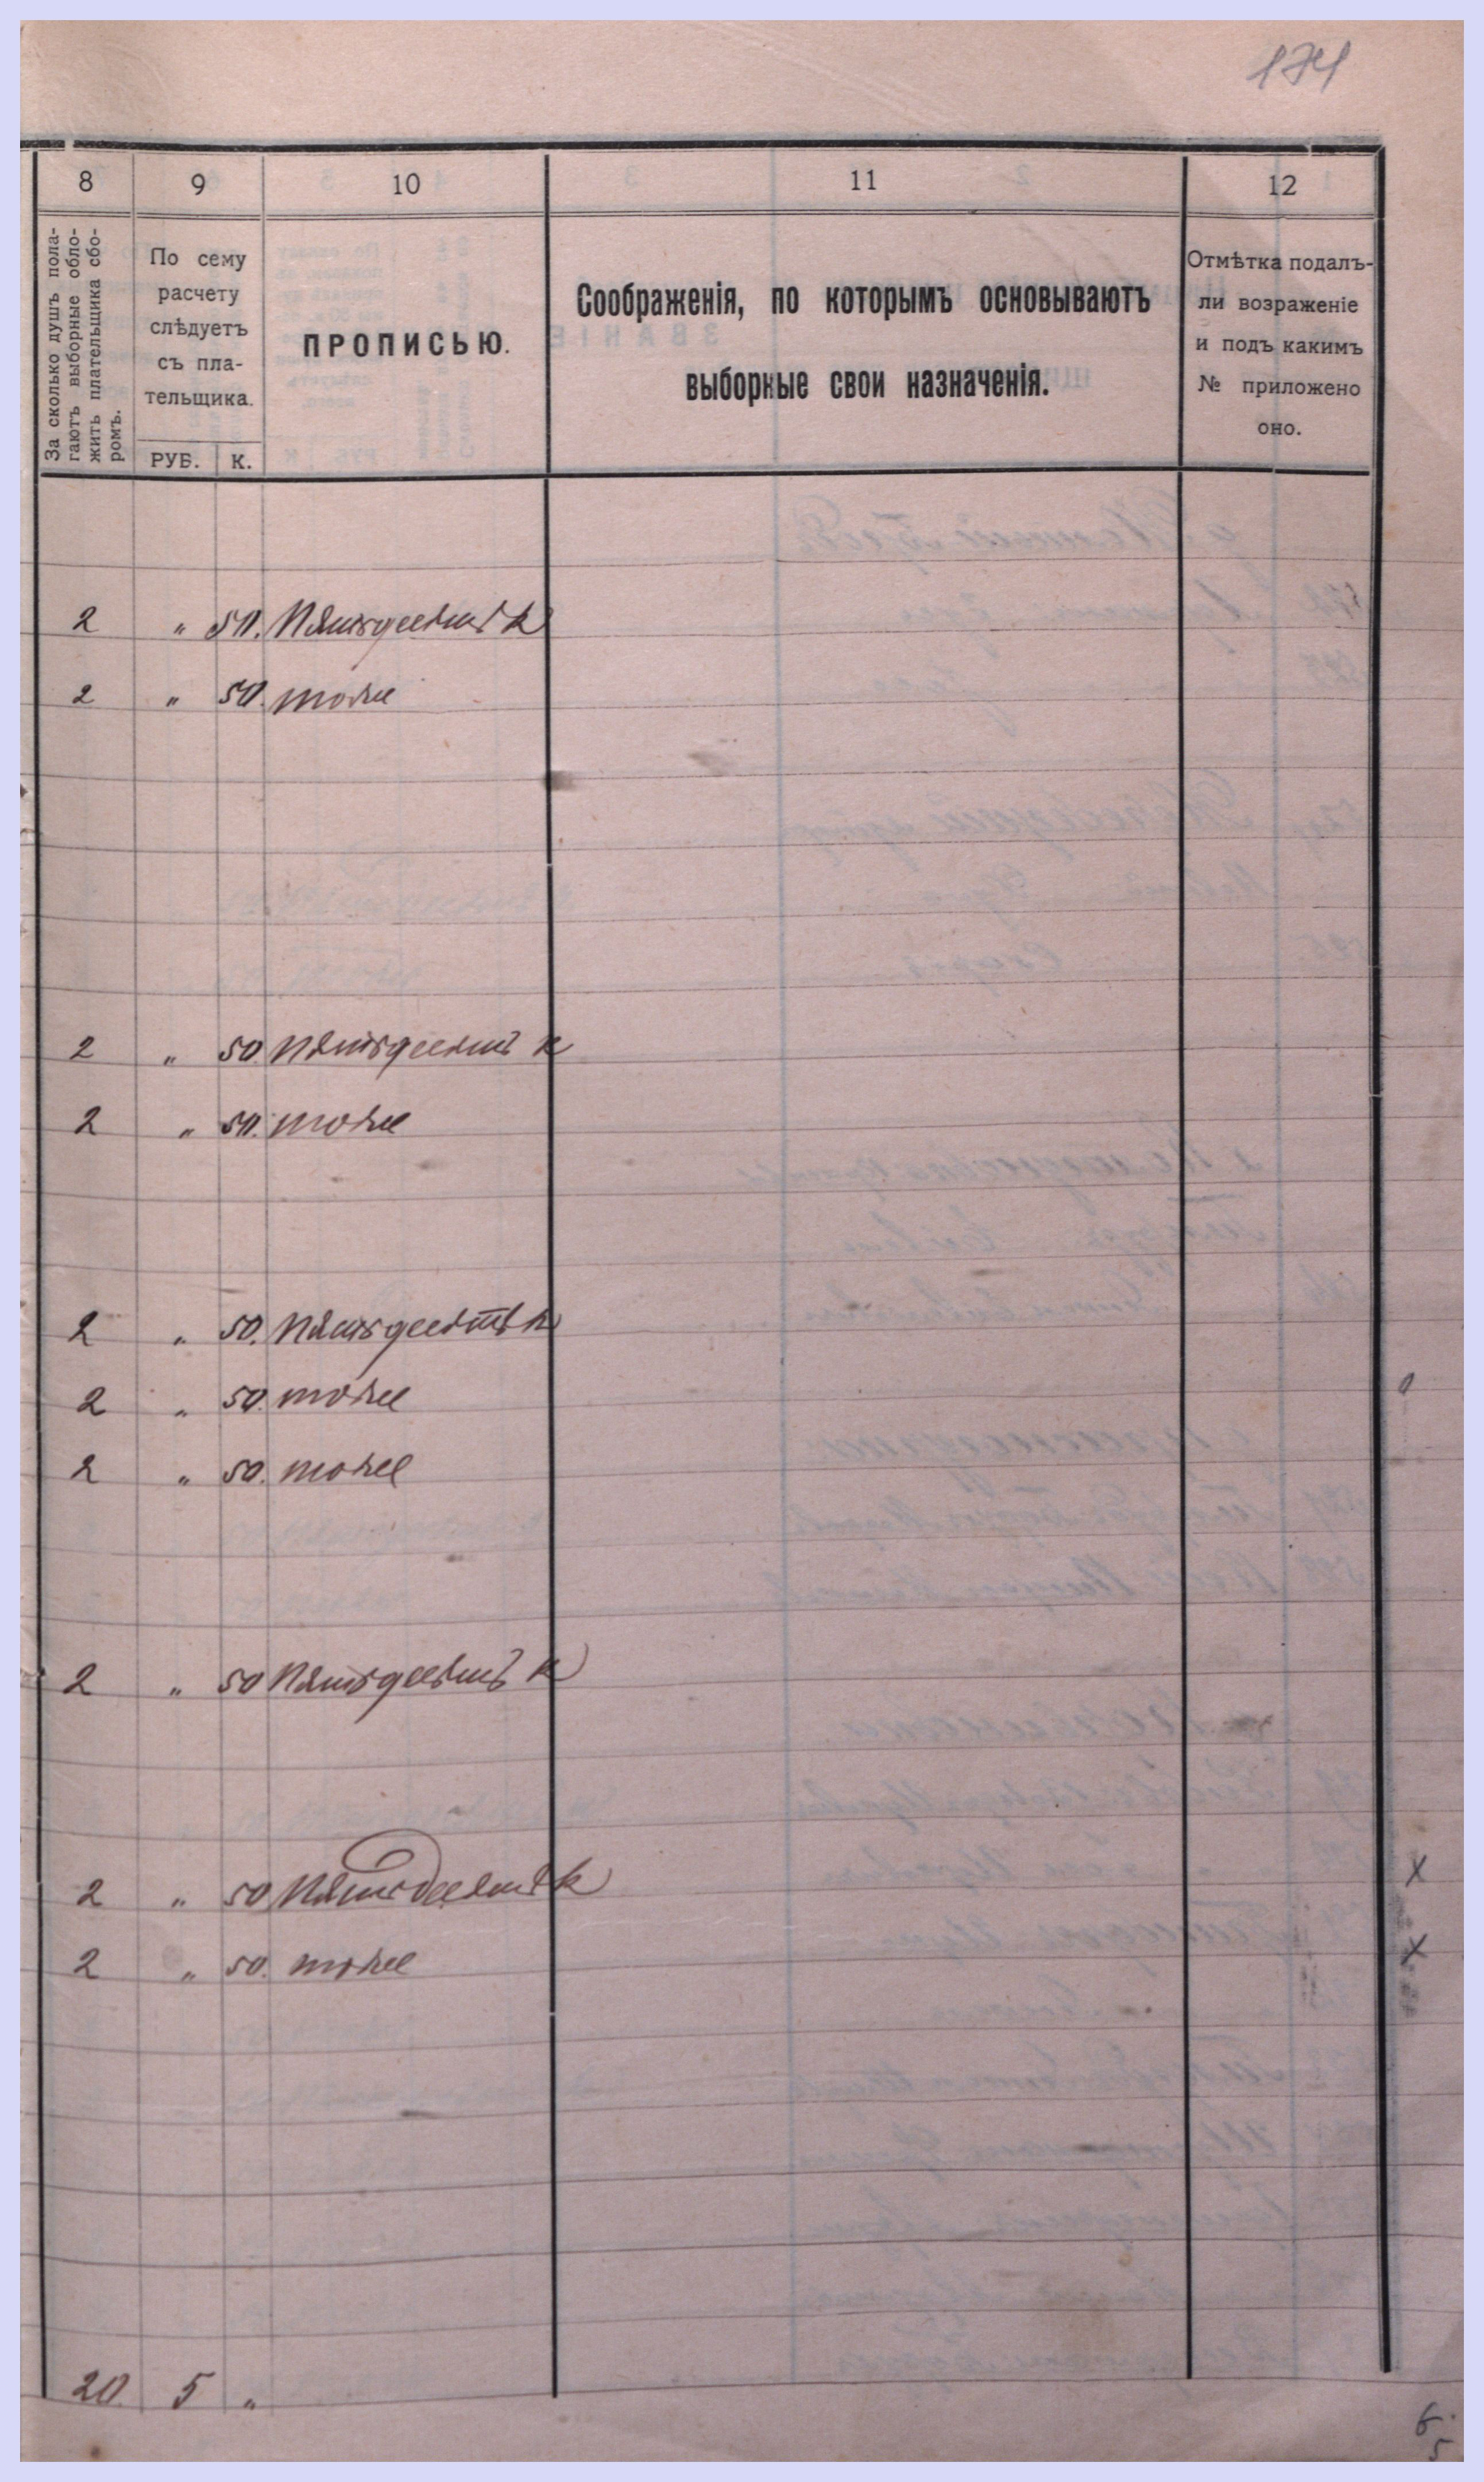 174
8 9 10 11 12
За сколько душъ пола-
гаютъ выборные обло-
жить плательщика сбо-
ромъ.
По сему
расчету
слѣдуетъ
съ пла-
тельщика.
РУБ. К.
ПРОПИСЬЮ.
Соображенія, по которымъ основываютъ
выборные свои назначенія.
Отмѣтка подалъ-
ли возраженіе
и подъ какимъ
№ приложено
оно.
2 " 50. Пятьдесятъ к
2 " 50. тоже
2 " 50 Пятьдесятъ к
2 " 50. тоже
2 " 50. Пятьдесятъ к
2 " 50. тоже
2 " 50. тоже
2 " 50 Пятьдесятъ к
2 " 50 Пятьдесятъ к х
2 " 50. тоже х
20 5 "